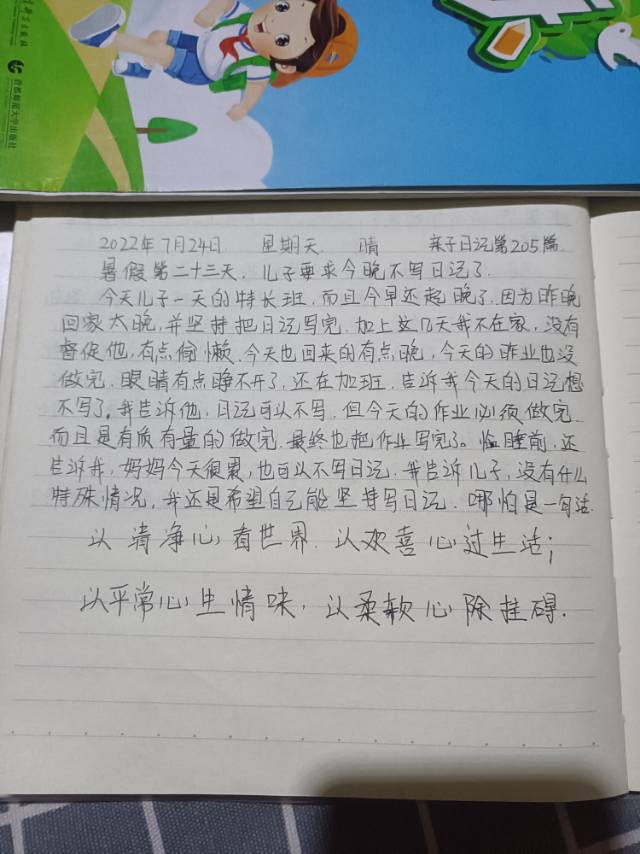 首都师范大学出版社
2022年7月24日 星期天 晴 亲子日记第205篇
暑假第二十三天，儿子要求今晚不写日记了
今天儿子一天的特长班，而且今早还起晚了，因为昨晚
回家太晚，并坚持把日记写完，加上这几天我不在家，没有
督促他，有点偷懒，今天也回来的有点晚，今天的作业也没
做完，眼睛有点睁不开了，还在加班，告诉我今天的日记想
不写了。我告诉他，日记可以不写，但今天的作业必须做完
而且是有质有量的做完，最终也把作业写完了。临睡前，还
告诉我，妈妈今天很累，也可以不写日记，我告诉儿子，没有什么
特殊情况，我还是希望自己能坚持写日记，哪怕是一句话.
以清净心看世界，以欢喜心过生活；
以平常心生情味，以柔软心除挂碍.